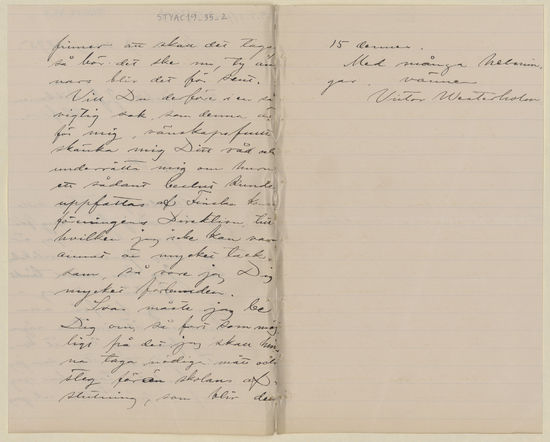 STYAC19_35_2
finner att skall det taga
så bör det ske nu, ty än
nars blir det för sent.
Vill Du derföre i en så
vigtig sak, som denna är
för mig, vänskapsfullt
skänka mig Ditt råd och
underrätta mig om huru
ett sådant beslut kunde
uppfattas af Finska Kon
föreningens Direktion, till
hvilken jag icke kan vara
annat än mycket tack-
sam, så vore jag Dig
mycket förbunden.
Svar måste jag be
Dig om, så fort som möj
ligt på det jag skall hin
na taga nödiga mått och
steg för skolans af-
slutning, som blir den
15 dennes.
Med många helsnin
gar, vännen
Victor Westerholm